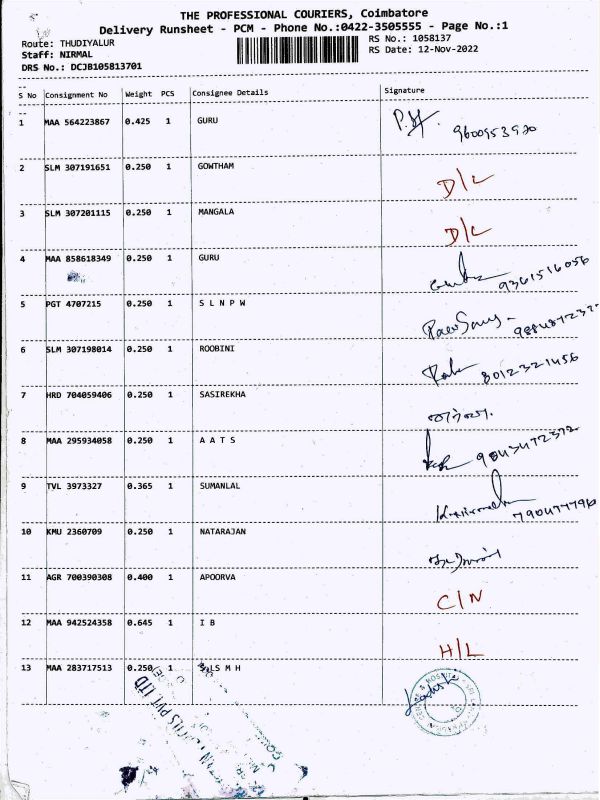 THE PROFESSIONAL COURIERS, Coimbatore
Delivery Runsheet - PCM - Phone No.:0422-3505555 - Page No.:1
Route: THUDIYALUR
RS No.: 1058137
Staff: NIRMAL
RS Date: 12-Nov-2022
DRS No.: DCJB105813701
S No Consignment No Weight PCS Consignee Details Signature
1 MAA 564223867 0.425 1 GURU 9600953920
2 SLM 307191651 0.250 1 GOWTHAM D/L
3 SLM 307201115 0.250 1 MANGALA D/L
4 MAA 858618349 0.250 1 GURU 9361516056
5 PGT 4707215 0.250 1 S L N P W
6 SLM 307198014 0.250 1 ROOBINI 8012321456
7 HRD 704059406 0.250 1 SASIREKHA
8 MAA 295934058 0.250 1 A A T S 9843472372
9 TVL 3973327 0.365 1 SUMANLAL
10 KMU 2360709 0.250 1 NATARAJAN
11 AGR 700390308 0.400 1 APOORVA C/N
12 MAA 942524358 0.645 1 I B H/L
13 MAA 283717513 0.250 1 LS M H
PVT. LTD